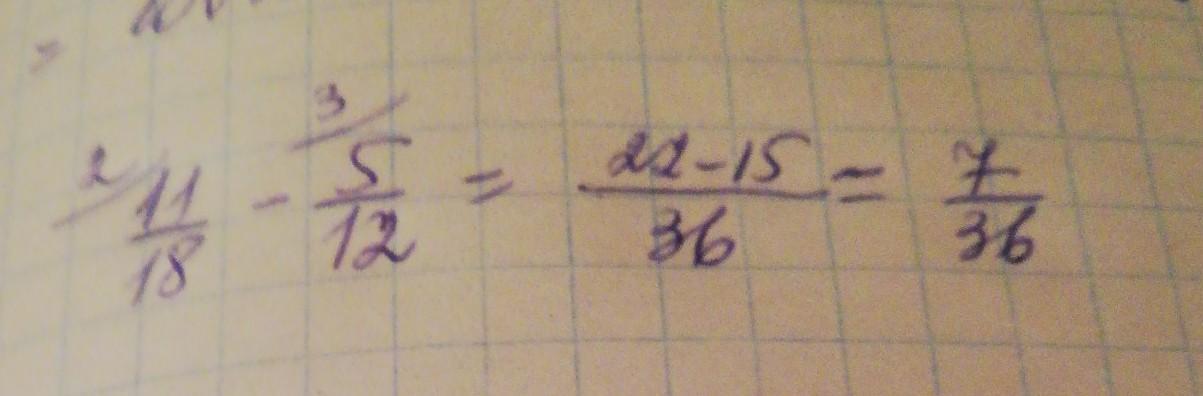 =
2/ 11/18 - 3/ 5/12 = 22-15/36 = 7/36